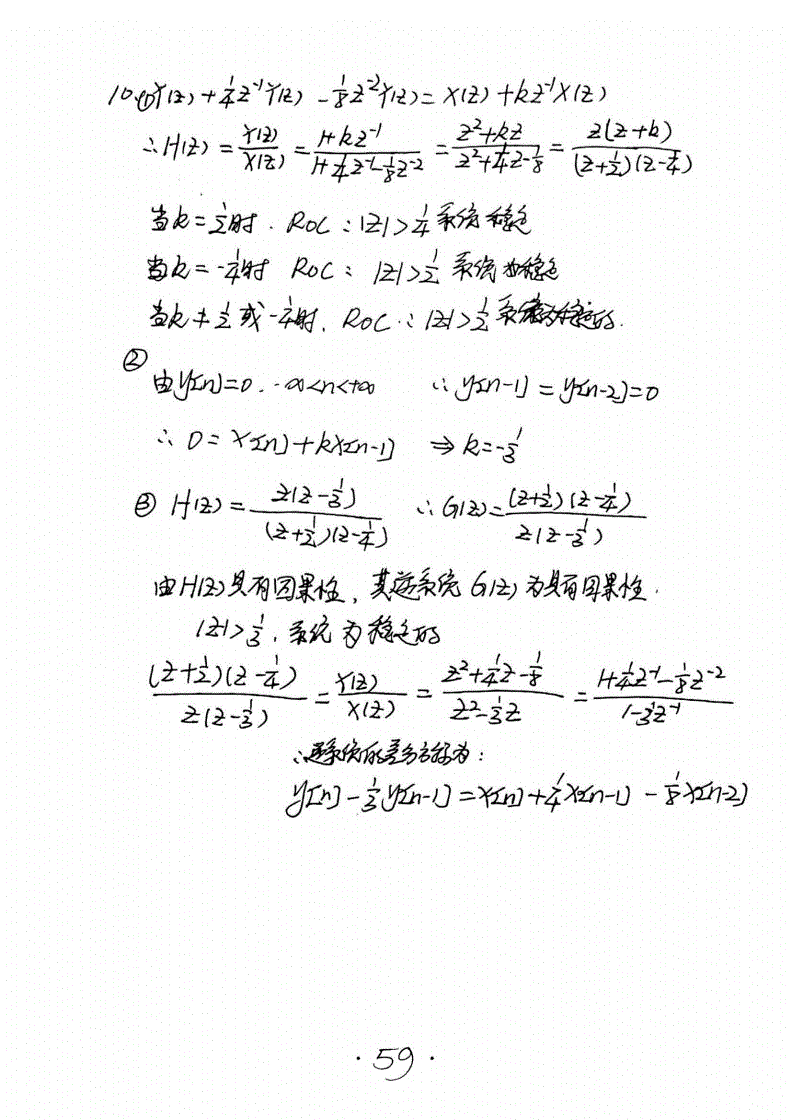 10.① Y(z)+1/4z⁻¹Y(z)-1/8z⁻²Y(z)=X(z)+kz⁻¹X(z)
∴H(z)=Y(z)/X(z)=(1+kz⁻¹)/(1+1/4z⁻¹-1/8z⁻²)=(z²+kz)/(z²+1/4z-1/8)=z(z+k)/((z+1/2)(z-1/4))
当k=1/2时. ROC:|z|>1/4 系统稳定
当k=-1/4时 ROC: |z|>1/2 系统为稳定
当k≠1/2或-1/4时, ROC:|z|>1/2 系统为稳定的.
②
由y[n]=0. -∞<n<+∞ ∴y[n-1]=y[n-2]=0
∴0=x[n]+kx[n-1] ⇒k=-1/3
③ H(z)=z(z-1/3)/((z+1/2)(z-1/4)) ∴G(z)=(z+1/2)(z-1/4)/(z(z-1/3))
由H(z)具有因果性, 其逆系统G(z)为具有因果性.
|z|>1/3, 系统为稳定的
(z+1/2)(z-1/4)/(z(z-1/3))=Y(z)/X(z)=(z²+1/4z-1/8)/(z²-1/3z)=(1+1/4z⁻¹-1/8z⁻²)/(1-1/3z⁻¹)
∴逆系统的差分方程为:
y[n]-1/3y[n-1]=x[n]+1/4x[n-1]-1/8x[n-2]
·59·